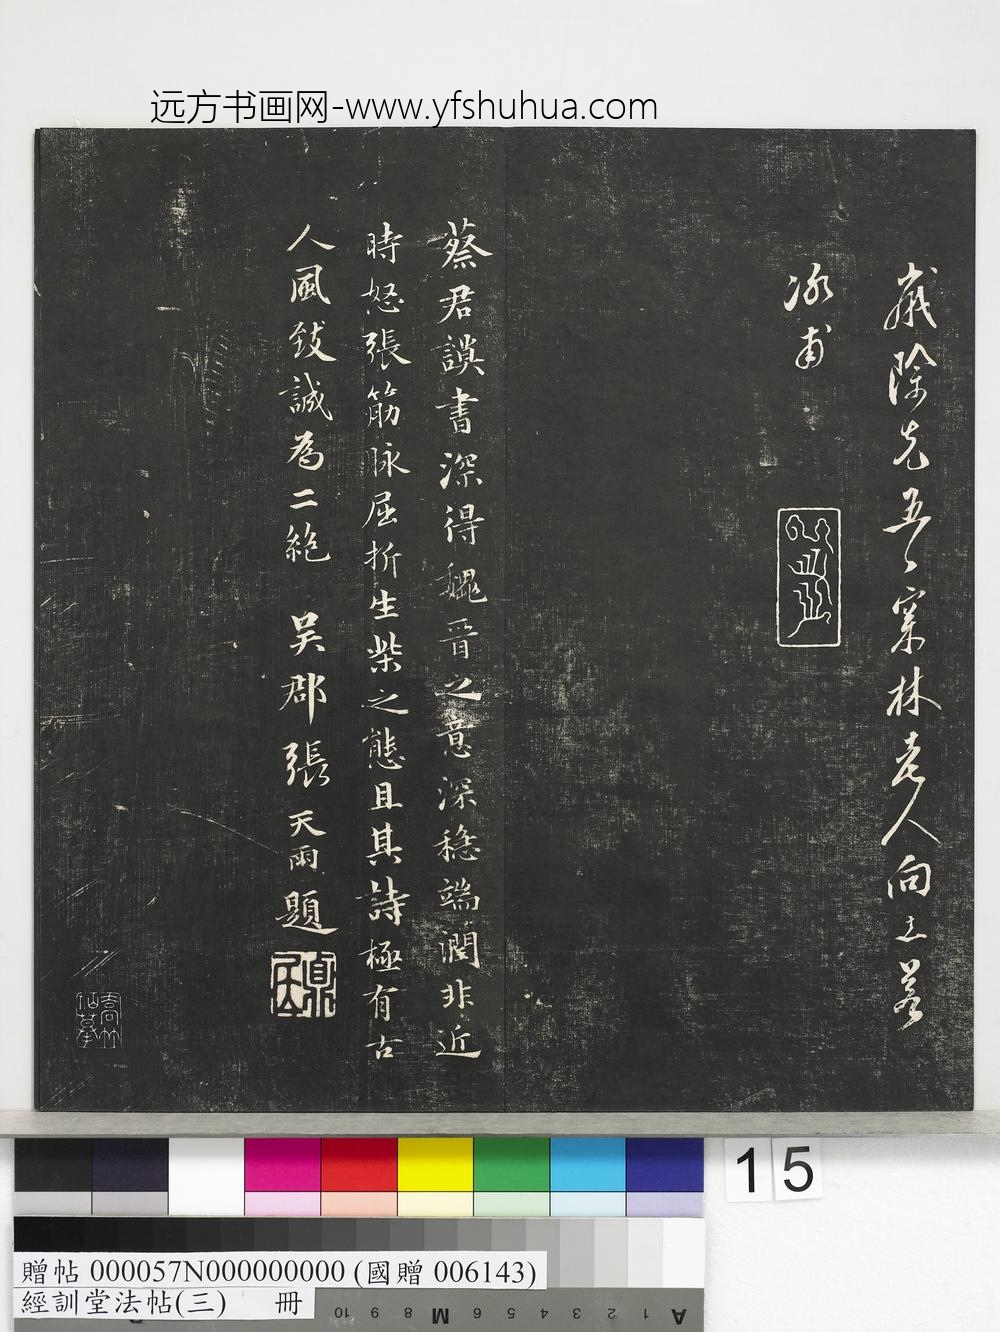 远方书画网-www.yfshuhua.com
歲除克五〻窠林老人向士荖
冰甫
蔡君謨書深得魏晉之意深穩端潤非近
時怒張筋脉屈折生柴之態且其詩極有古
人風致誠為二絶 吴郡張天雨題
15
贈帖 000057N000000000 (國贈 006143)
經訓堂法帖(三) 冊
10 9 8 M 6 5 4 3 2 1 A